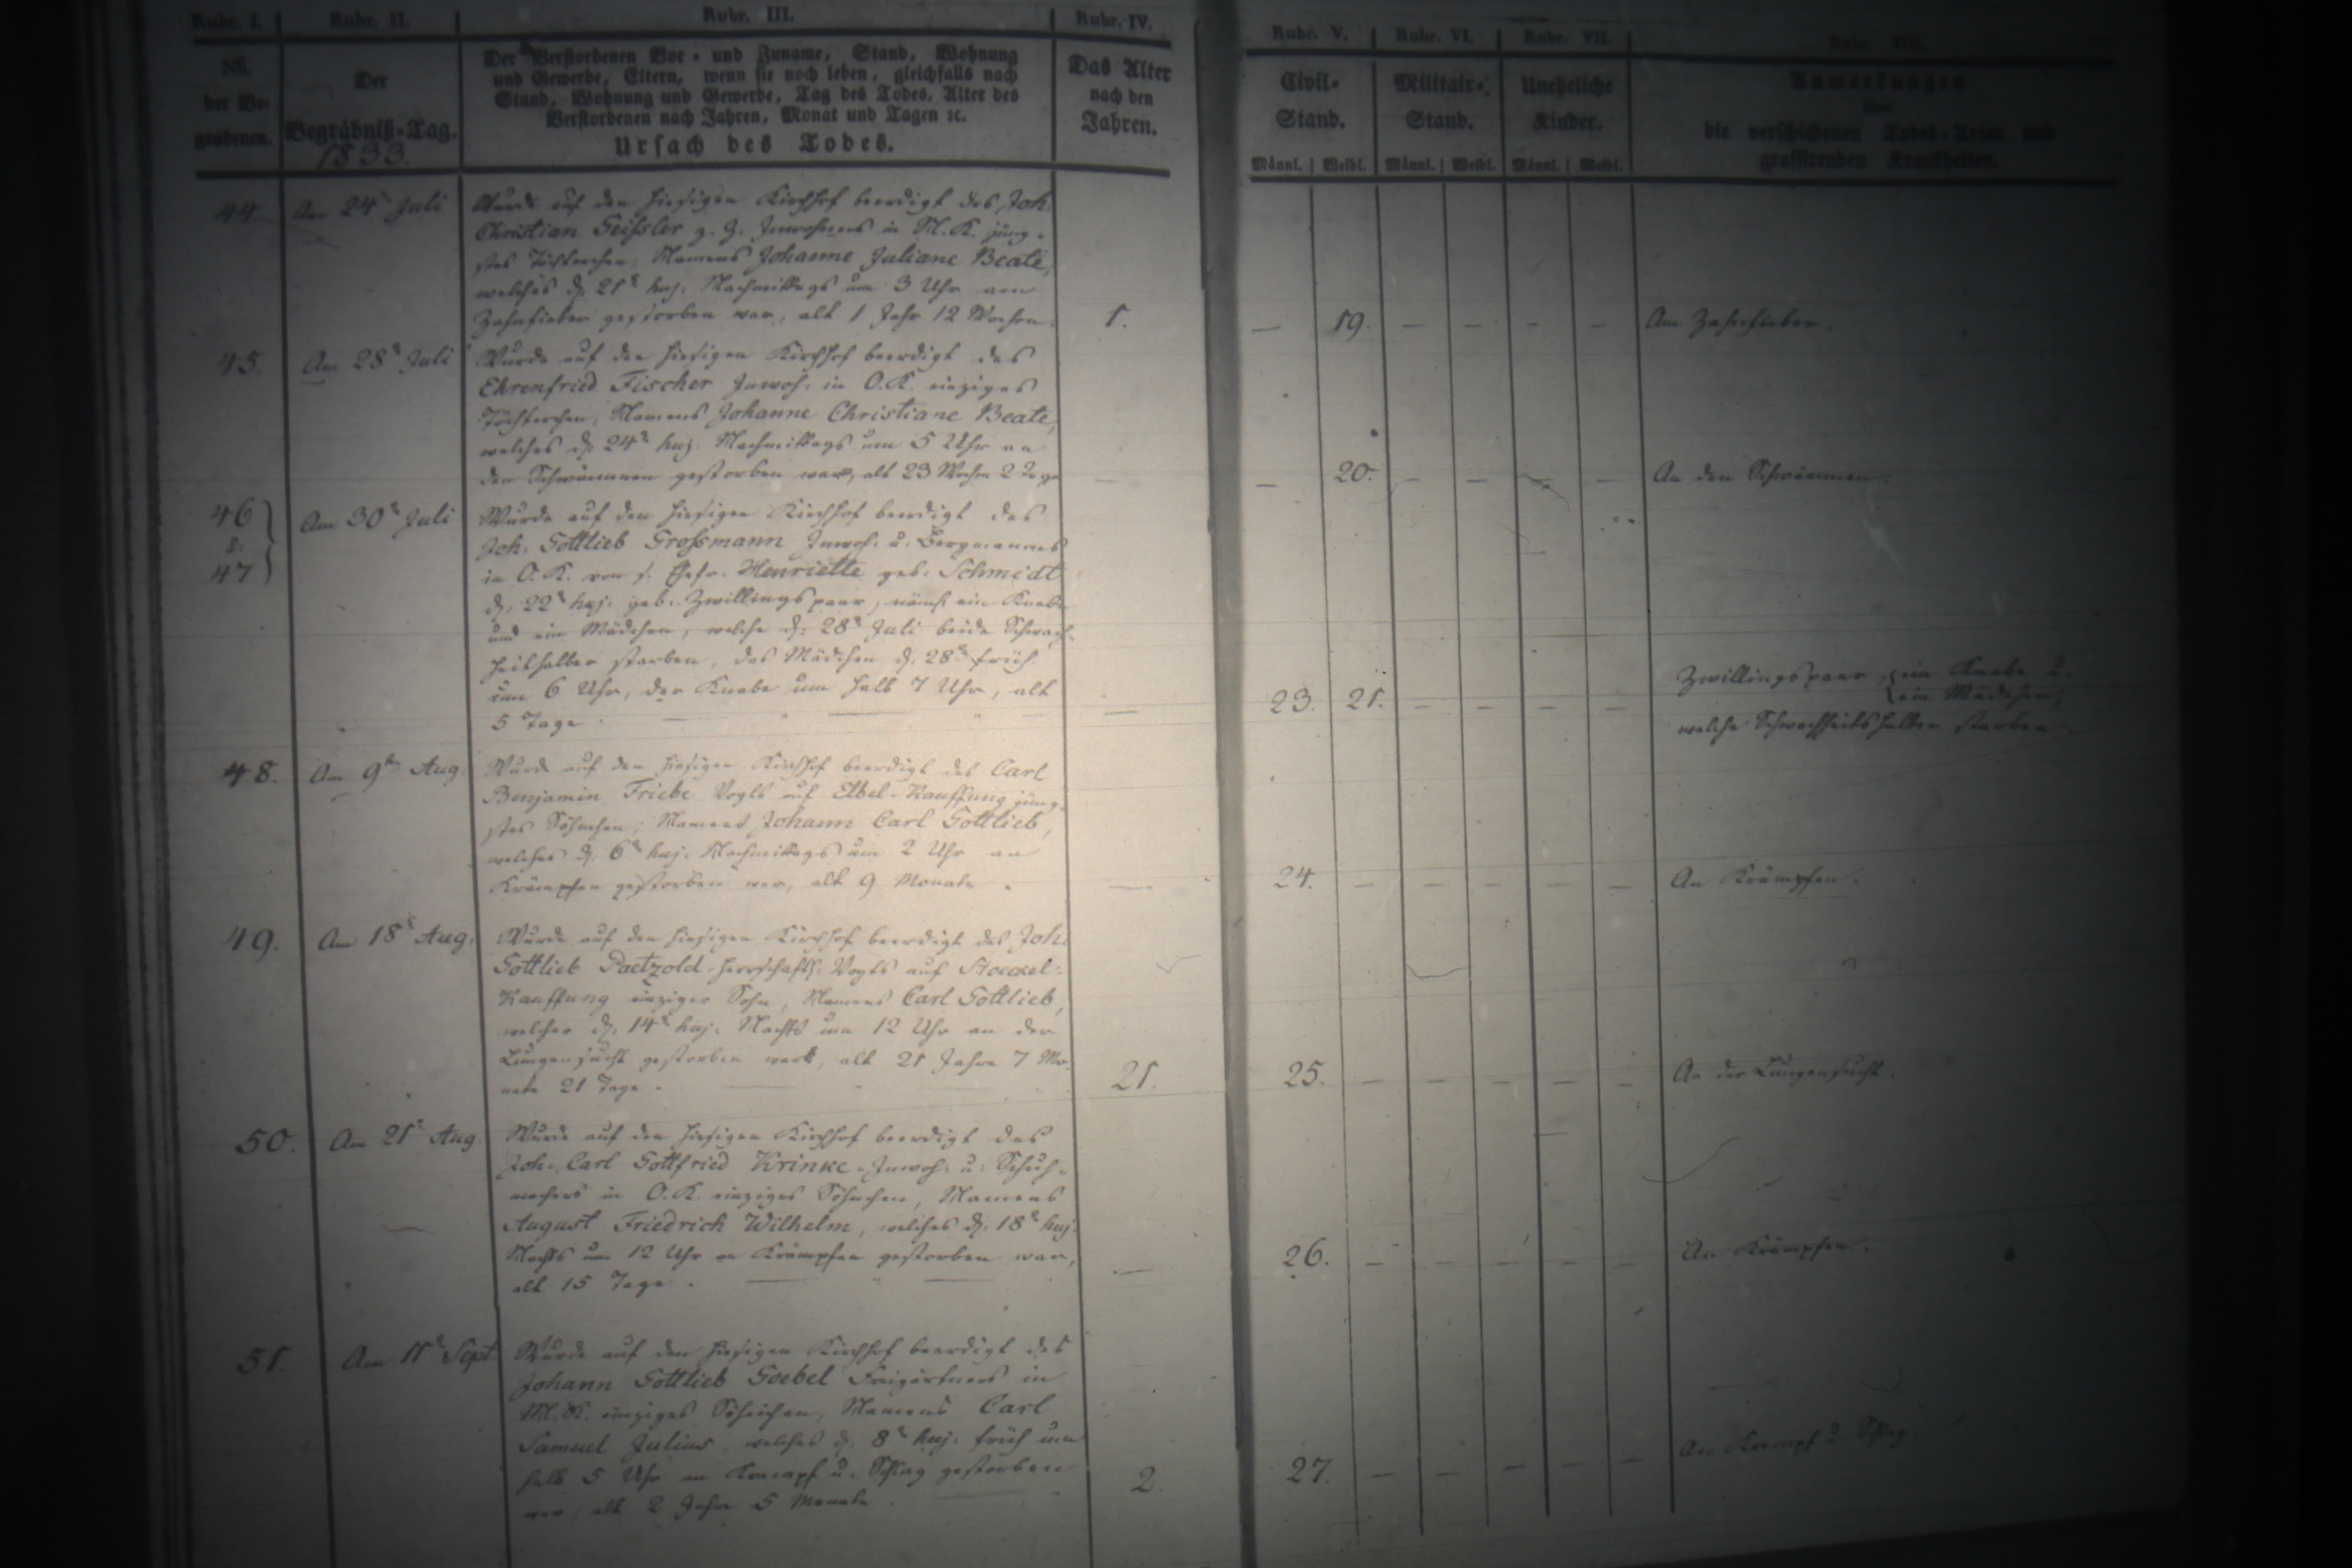 Rubr. I. Rubr. II. Rubr. III. Rubr. IV. Rubr. V. Rubr. VI. Rubr. VII. Rubr. VIII.
No. der Be- grabenen.
Der Begräbniß-Tag.
1833.
Der Verstorbenen Vor- und Zuname, Stand, Wohnung
und Gewerbe, Eltern, wenn sie noch leben, gleichfalls nach
Stand, Wohnung und Gewerbe, Tag des Todes, Alter des
Verstorbenen nach Jahren, Monat und Tagen ꝛc.
Ursach des Todes.
Das Alter
nach den
Jahren.
Civil-
Stand.
Militair-
Stand.
Uneheliche
Kinder.
Anmerkungen
über
die verschiedenen Todes-Arten und
grassirenden Krankheiten.
Männl. Weibl. Männl. Weibl. Männl. Weibl.
44. Am 24t Juli Wurde auf den hiesigen Kirchhof beerdigt des Joh:
Christian Geißler z. Z. Inwohners in M. K. jüng-
stes Töchterchen, Namens Johanne Juliane Beate,
welches d. 21t huj: Nachmittags um 3 Uhr am
Zahnfieber gestorben war, alt 1 Jahr 12 Wochen. 1. — 19. — — — — Am Zahnfieber.
45. Am 28t Juli Wurde auf den hiesigen Kirchhof beerdigt des
Ehrenfried Fischer Inwoh: in O. K. einziges
Töchterchen, Namens Johanne Christiane Beate,
welches d. 24t huj: Nachmittags um 5 Uhr an
den Schwämmen gestorben war, alt 23 Wochen 2 Tage — — 20. — — — — An den Schwämmen.
46 & 47 Am 30t Juli Wurde auf den hiesigen Kirchhof beerdigt des
Joh: Gottlieb Großmann Inwoh: u. Bergmannes
in O. K. von s. Ehefr. Henriette geb. Schmidt
d. 22t huj: geb. Zwillingspaar, nämlich ein Knabe
und ein Mädchen, welche d. 28t Juli beide Schwach-
heithalber starben, das Mädchen d. 28t früh
um 6 Uhr, der Knabe um halb 7 Uhr, alt
5 Tage. — 23. 21. — — — — Zwillingspaar, ein Knabe u.
ein Mädchen,
welche Schwachheitshalber starben.
48. Am 9ten Aug: Wurde auf den hiesigen Kirchhof beerdigt des Carl
Benjamin Friebe Vogts auf Elbel-Kauffung jüng-
stes Söhnchen, Namens Johann Carl Gottlieb,
welches d. 6t huj: Nachmittags um 2 Uhr an
Krämpfen gestorben war, alt 9 Monate. — 24. — — — — — An Krämpfen.
49. Am 18t Aug: Wurde auf den hiesigen Kirchhof beerdigt des Joh:
Gottlieb Paetzold herrschaftl: Vogts auf
Kauffung einziger Sohn, Namens Carl Gottlieb,
welcher d. 14t huj: Nachts um 12 Uhr an der
Lungensucht gestorben war, alt 21 Jahre 7 Mo-
nate 21 Tage. 21. 25. — — — — — An der Lungensucht.
50. Am 21t Aug Wurde auf den hiesigen Kirchhof beerdigt des
Joh: Carl Gottfried Krinke Inwoh: u: Schuh-
machers in O. K. einziges Söhnchen, Namens
August Friedrich Wilhelm, welches d. 18t huj:
Nachts um 12 Uhr an Krämpfen gestorben war,
alt 15 Tage. — 26. — — — — — An Krämpfen.
51. Am 11t Sept. Wurde auf den hiesigen Kirchhof beerdigt des
Johann Gottlieb Goebel Freigärtners in
M. K. einziges Söhnchen, Namens Carl
Samuel Julius, welches d. 8t huj. früh um
halb 5 Uhr an Krampf u. Schlag gestorben
war, alt 2 Jahre 5 Monate. 2. 27. — — — — — An Krampf u. Schlag.